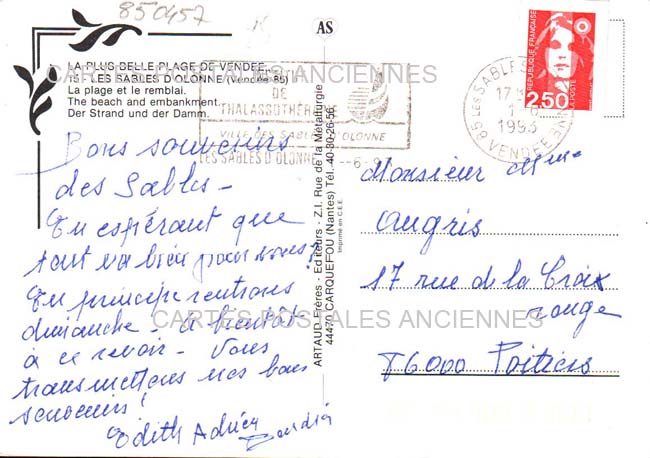 850457
AS
LA PLUS BELLE PLAGE DE VENDEE
LES SABLES D'OLONNE (Vendée-85)
La plage et le remblai.
The beach and embankment.
Der Strand und der Damm.
CARTES POSTALES ANCIENNES
DE
THALASSOTHÉRAPIE
VILLE DES SABLES D'OLONNE
LES SABLES D'OLONNE
85 LES SABLES
17H
1-6
1993
VENDEE
REPUBLIQUE FRANÇAISE
LA POSTE
2,50
ARTAUD Frères - Editeurs - Z.I. Rue de la Métallurgie
44470 CARQUEFOU (Nantes) Tél. 40-30-26-56
Imprimé en C.E.E.
Bons souvenirs
des Sables -
En espérant que
tout va bien pour vous !
En principe rentrons
dimanche - A bientôt
à se revoir - Vous
transmettons nos bons
souvenirs !
Edith Adrien
Monsieur Mme
Augris
17 rue de la Croix
rouge
86000 Poitiers
CARTES POSTALES ANCIENNES